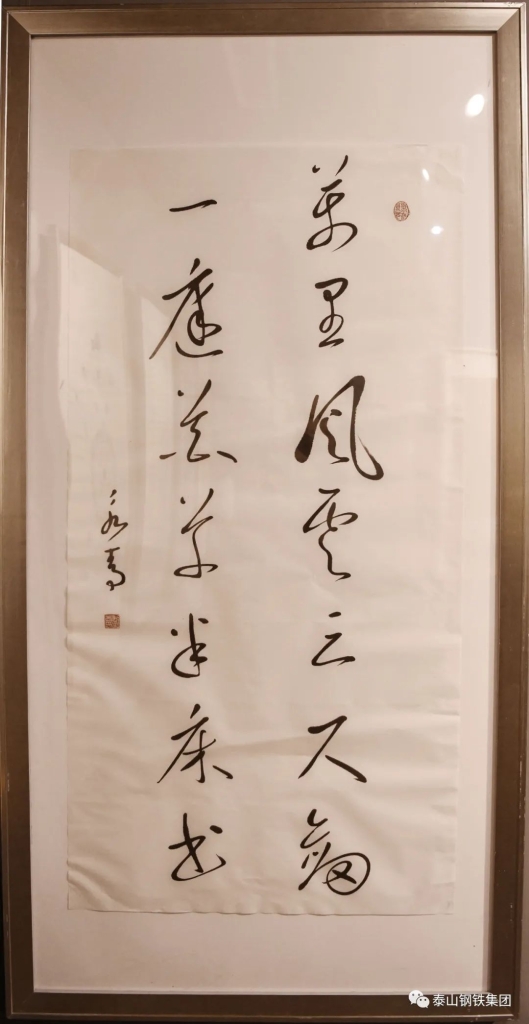 万里风云三尺剑
一庭花草半床书
泰山钢铁集团